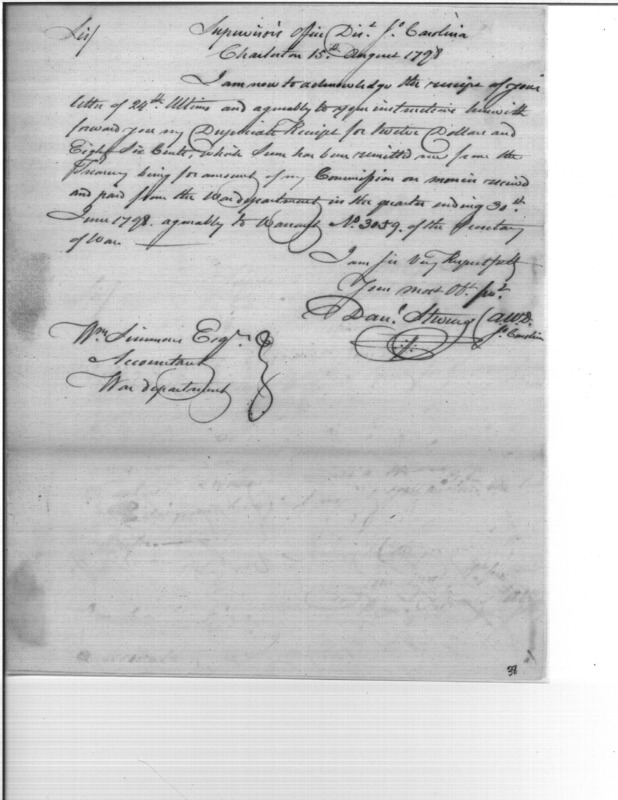 Sir/ Supervisor's Office Dist. So. Carolina
Charleston 15th. August 1798
I am now to acknowledge the receipt of your
letter of 24th. Ultimo and agreeably to your instructions herewith
forward you my Duplicate Receipt for twelve Dollars and
Eighty Six Cents, which Sum has been remitted me from the
Treasury being for amount of my Commission on monies received
and paid from the War department in the quarter ending 30th.
June 1798. agreeably to Warrant No. 3059. of the Secretary
of War.
I am Sir Very Respectfully
Your most Ob. Sert.
Danl. Stevens
So. Carolina
Wm. Simmons Esqr.
Accountant
War department
38